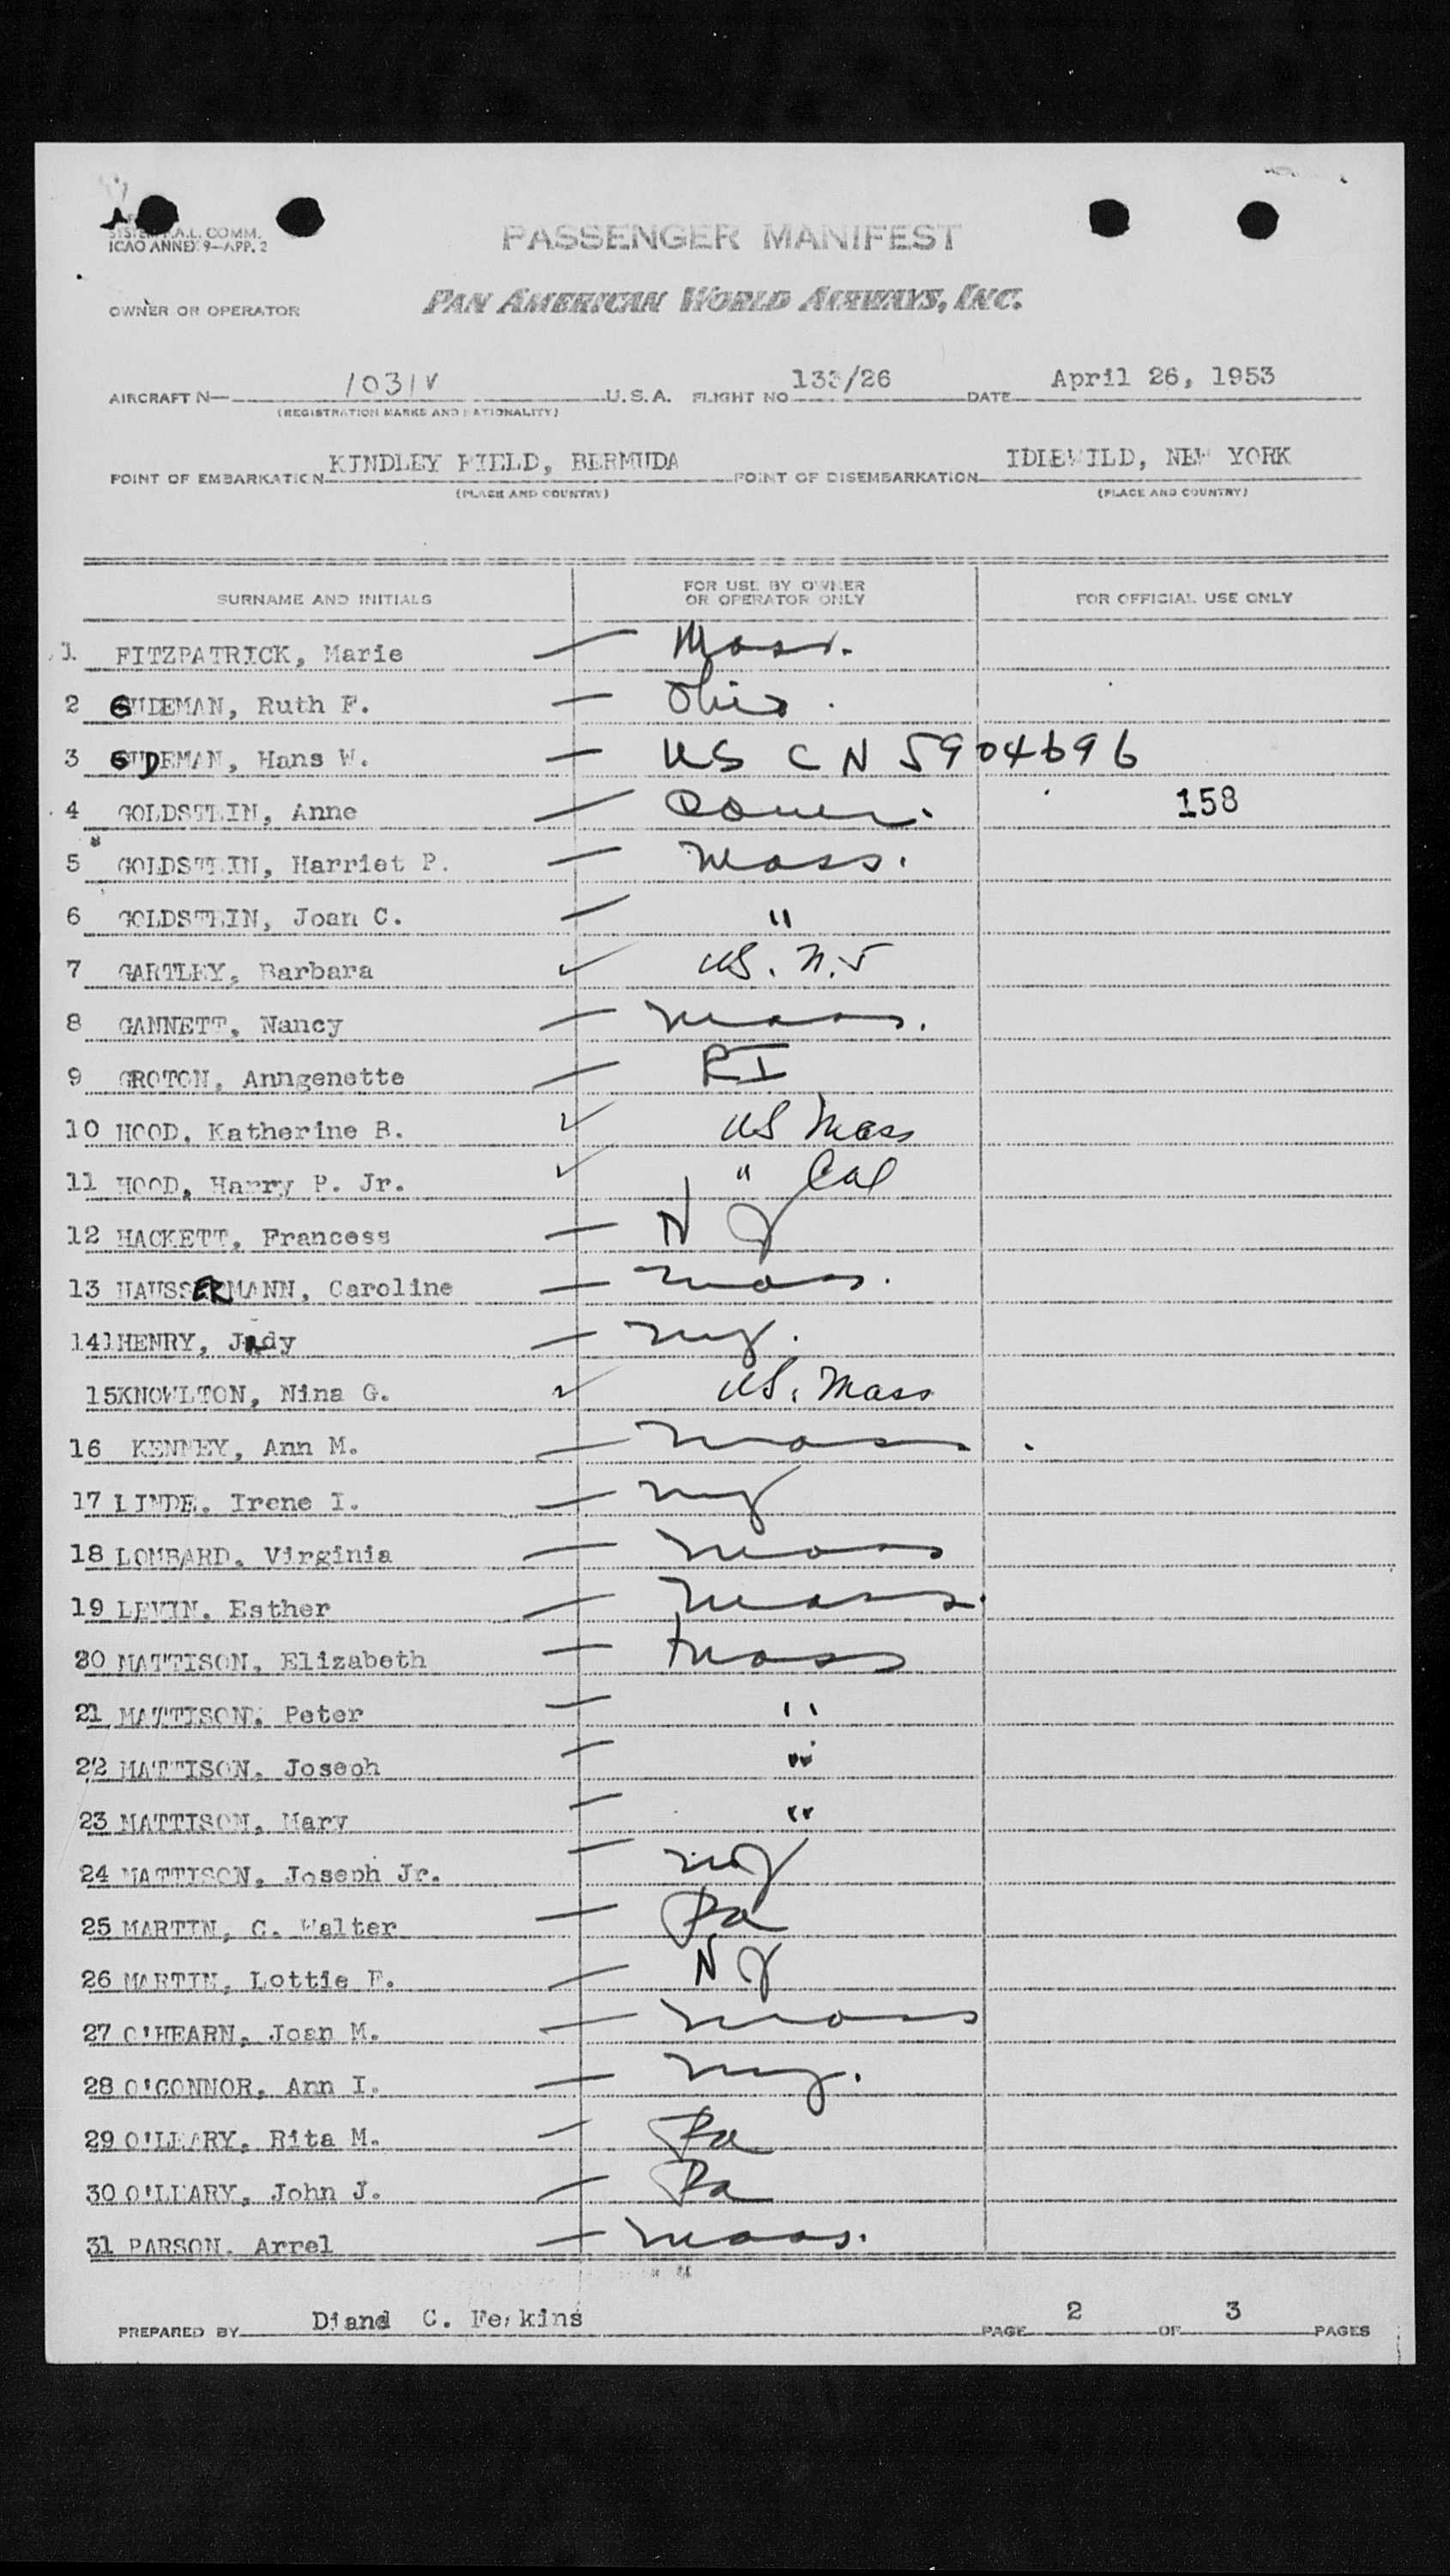 SYSTEM P.A.L. COMM.
ICAO ANNEX 9—APP. 2
PASSENGER MANIFEST
OWNER OR OPERATOR PAN AMERICAN WORLD AIRWAYS, INC.
AIRCRAFT N— 1031V U.S.A. FLIGHT NO 133/26 DATE April 26, 1953
(REGISTRATION MARKS AND NATIONALITY)
POINT OF EMBARKATION KINDLEY FIELD, BERMUDA POINT OF DISEMBARKATION IDLEWILD, NEW YORK
(PLACE AND COUNTRY) (PLACE AND COUNTRY)
SURNAME AND INITIALS FOR USE BY OWNER OR OPERATOR ONLY FOR OFFICIAL USE ONLY
1 FITZPATRICK, Marie — Mass.
2 GUDEMAN, Ruth F. — Ohio.
3 GUDEMAN, Hans W. — US C N 5904696
4 GOLDSTEIN, Anne — Conn. 158
5 GOLDSTEIN, Harriet P. — Mass.
6 GOLDSTEIN, Joan C. — "
7 GARTLEY, Barbara ✓ US. N.J
8 GANNETT, Nancy — Mass.
9 GROTON, Anngenette — RI
10 HOOD, Katherine B. ✓ US Mass
11 HOOD, Harry P. Jr. ✓ " Cal
12 HACKETT, Francess — N Y
13 HAUSSERMANN, Caroline — Mass.
14 HENRY, Judy — NY.
15 KNOWLTON, Nina G. ✓ US. Mass
16 KENNEY, Ann M. — Mass.
17 LINDE, Irene I. — NY
18 LOMBARD, Virginia — Mass
19 LEVIN, Esther — Mass.
20 MATTISON, Elizabeth — Mass
21 MATTISON, Peter — "
22 MATTISON, Joseph — "
23 MATTISON, Mary — "
24 MATTISON, Joseph Jr. — NY
25 MARTIN, C. Walter — Pa
26 MARTIN, Lottie F. — NY
27 O'HEARN, Joan M. — Mass
28 O'CONNOR, Ann I. — NY.
29 O'LEARY, Rita M. — Pa
30 O'LEARY, John J. — Pa
31 PARSON, Arrel — Mass.
PREPARED BY C. Perkins PAGE 2 OF 3 PAGES